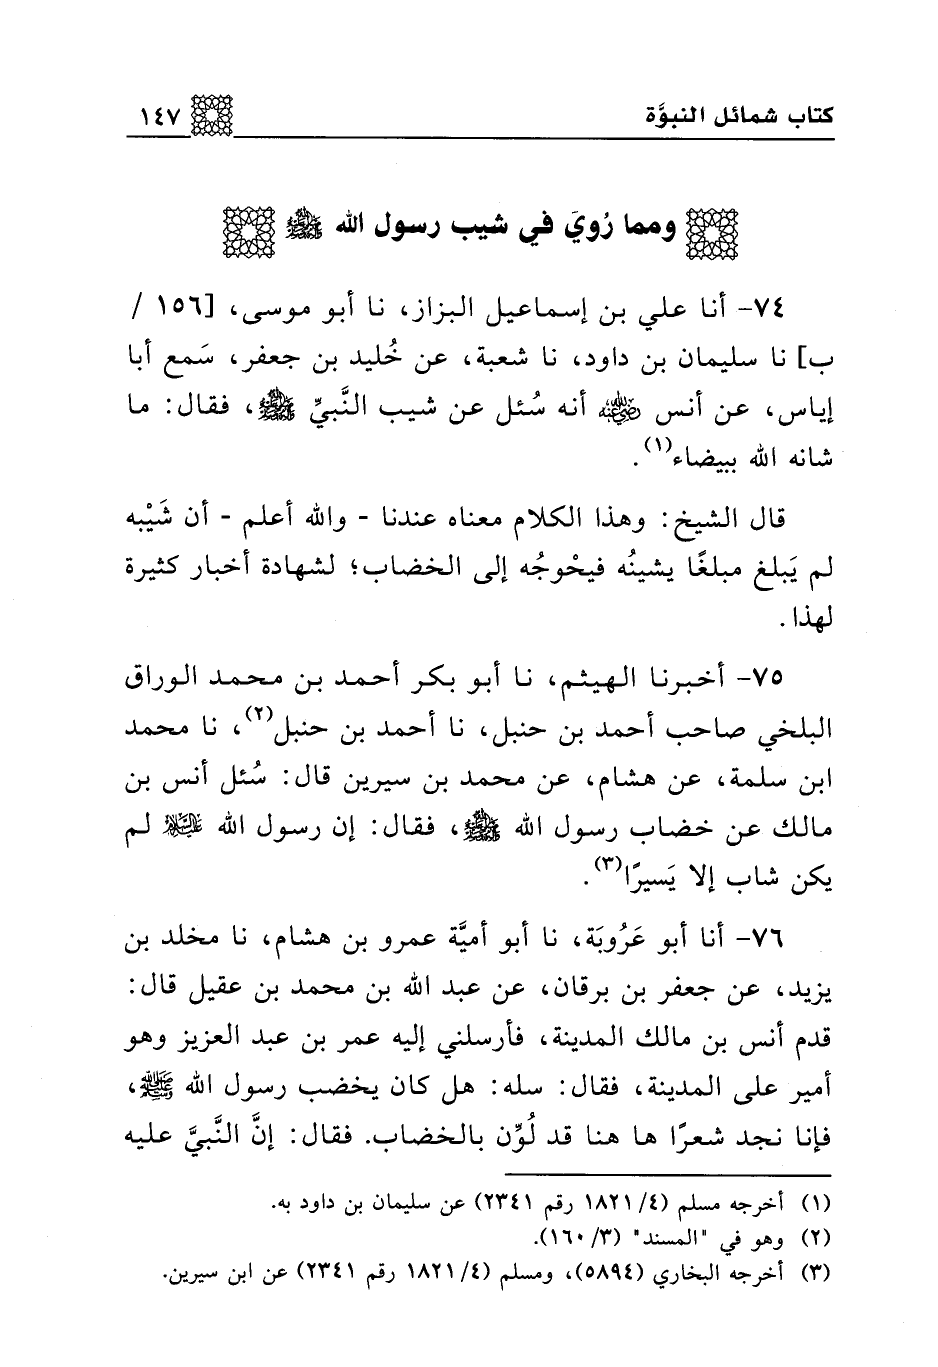 كتاب شمائل النبوَّة ١٤٧
ومما رُويَ في شيب رسول الله ﷺ
٧٤- أنا علي بن إسماعيل البزاز، نا أبو موسى، [١٥٦ /
ب] نا سليمان بن داود، نا شعبة، عن خُليد بن جعفر، سَمع أبا
إياس، عن أنس رضي الله عنه أنه سُئل عن شيب النَّبيِّ ﷺ، فقال: ما
شانه الله ببيضاء(١).
قال الشيخ: وهذا الكلام معناه عندنا - والله أعلم - أن شَيْبه
لم يَبلغ مبلغًا يشينُه فيحْوجُه إلى الخضاب؛ لشهادة أخبار كثيرة
لهذا.
٧٥- أخبرنا الهيثم، نا أبو بكر أحمد بن محمد الوراق
البلخي صاحب أحمد بن حنبل، نا أحمد بن حنبل(٢)، نا محمد
ابن سلمة، عن هشام، عن محمد بن سيرين قال: سُئل أنس بن
مالك عن خضاب رسول الله ﷺ، فقال: إن رسول الله عليه السلام لم
يكن شاب إلا يَسيرًا(٣).
٧٦- أنا أبو عَرُوبَة، نا أبو أميَّة عمرو بن هشام، نا مخلد بن
يزيد، عن جعفر بن برقان، عن عبد الله بن محمد بن عقيل قال:
قدم أنس بن مالك المدينة، فأرسلني إليه عمر بن عبد العزيز وهو
أمير على المدينة، فقال: سله: هل كان يخضب رسول الله ﷺ،
فإنا نجد شعرًا ها هنا قد لُوِّن بالخضاب. فقال: إنَّ النَّبيَّ عليه
(١) أخرجه مسلم (٤/ ١٨٢١ رقم ٢٣٤١) عن سليمان بن داود به.
(٢) وهو في "المسند" (٣/ ١٦٠).
(٣) أخرجه البخاري (٥٨٩٤)، ومسلم (٤/ ١٨٢١ رقم ٢٣٤١) عن ابن سيرين.